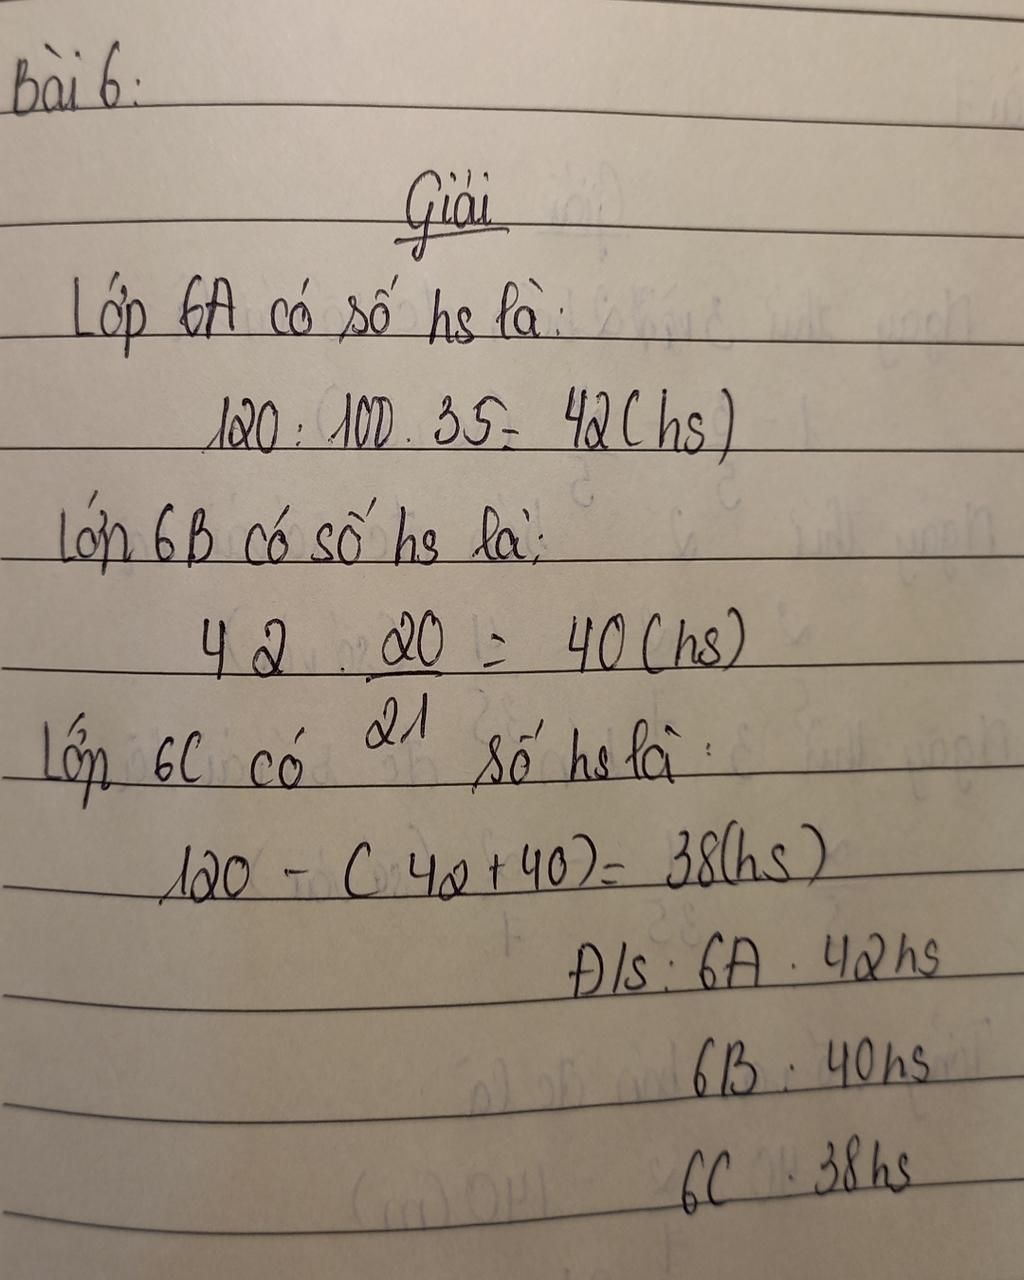 Bài 6:
Giải
Lớp 6A có số hs là:
120 : 100 . 35 = 42 (hs)
Lớp 6B có số hs là:
42 . 20/21 = 40 (hs)
Lớp 6C có số hs là:
120 - (42 + 40) = 38 (hs)
Đ/s: 6A . 42 hs
6B : 40 hs
6C . 38 hs